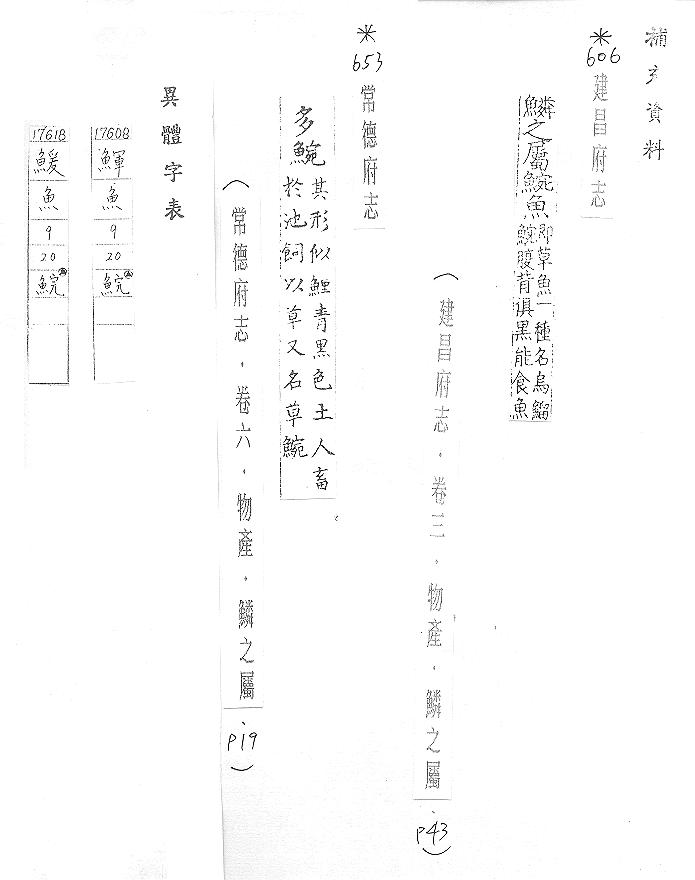 補充資料
*
606
建昌府志
鱗之屬鯇魚即草魚一種名烏鰡
鯇腹背俱黑能食魚
(建昌府志.卷三.物產.鱗之屬.P43)
*
653
常德府志
多鯇其形似鯉青黑色土人畜
於池飼以草又名草鯇
(常德府志.卷六.物產.鱗之屬.P19)
異體字表
17608
鯶
魚
9
20
鯇
17618
鰀
魚
9
20
鯇